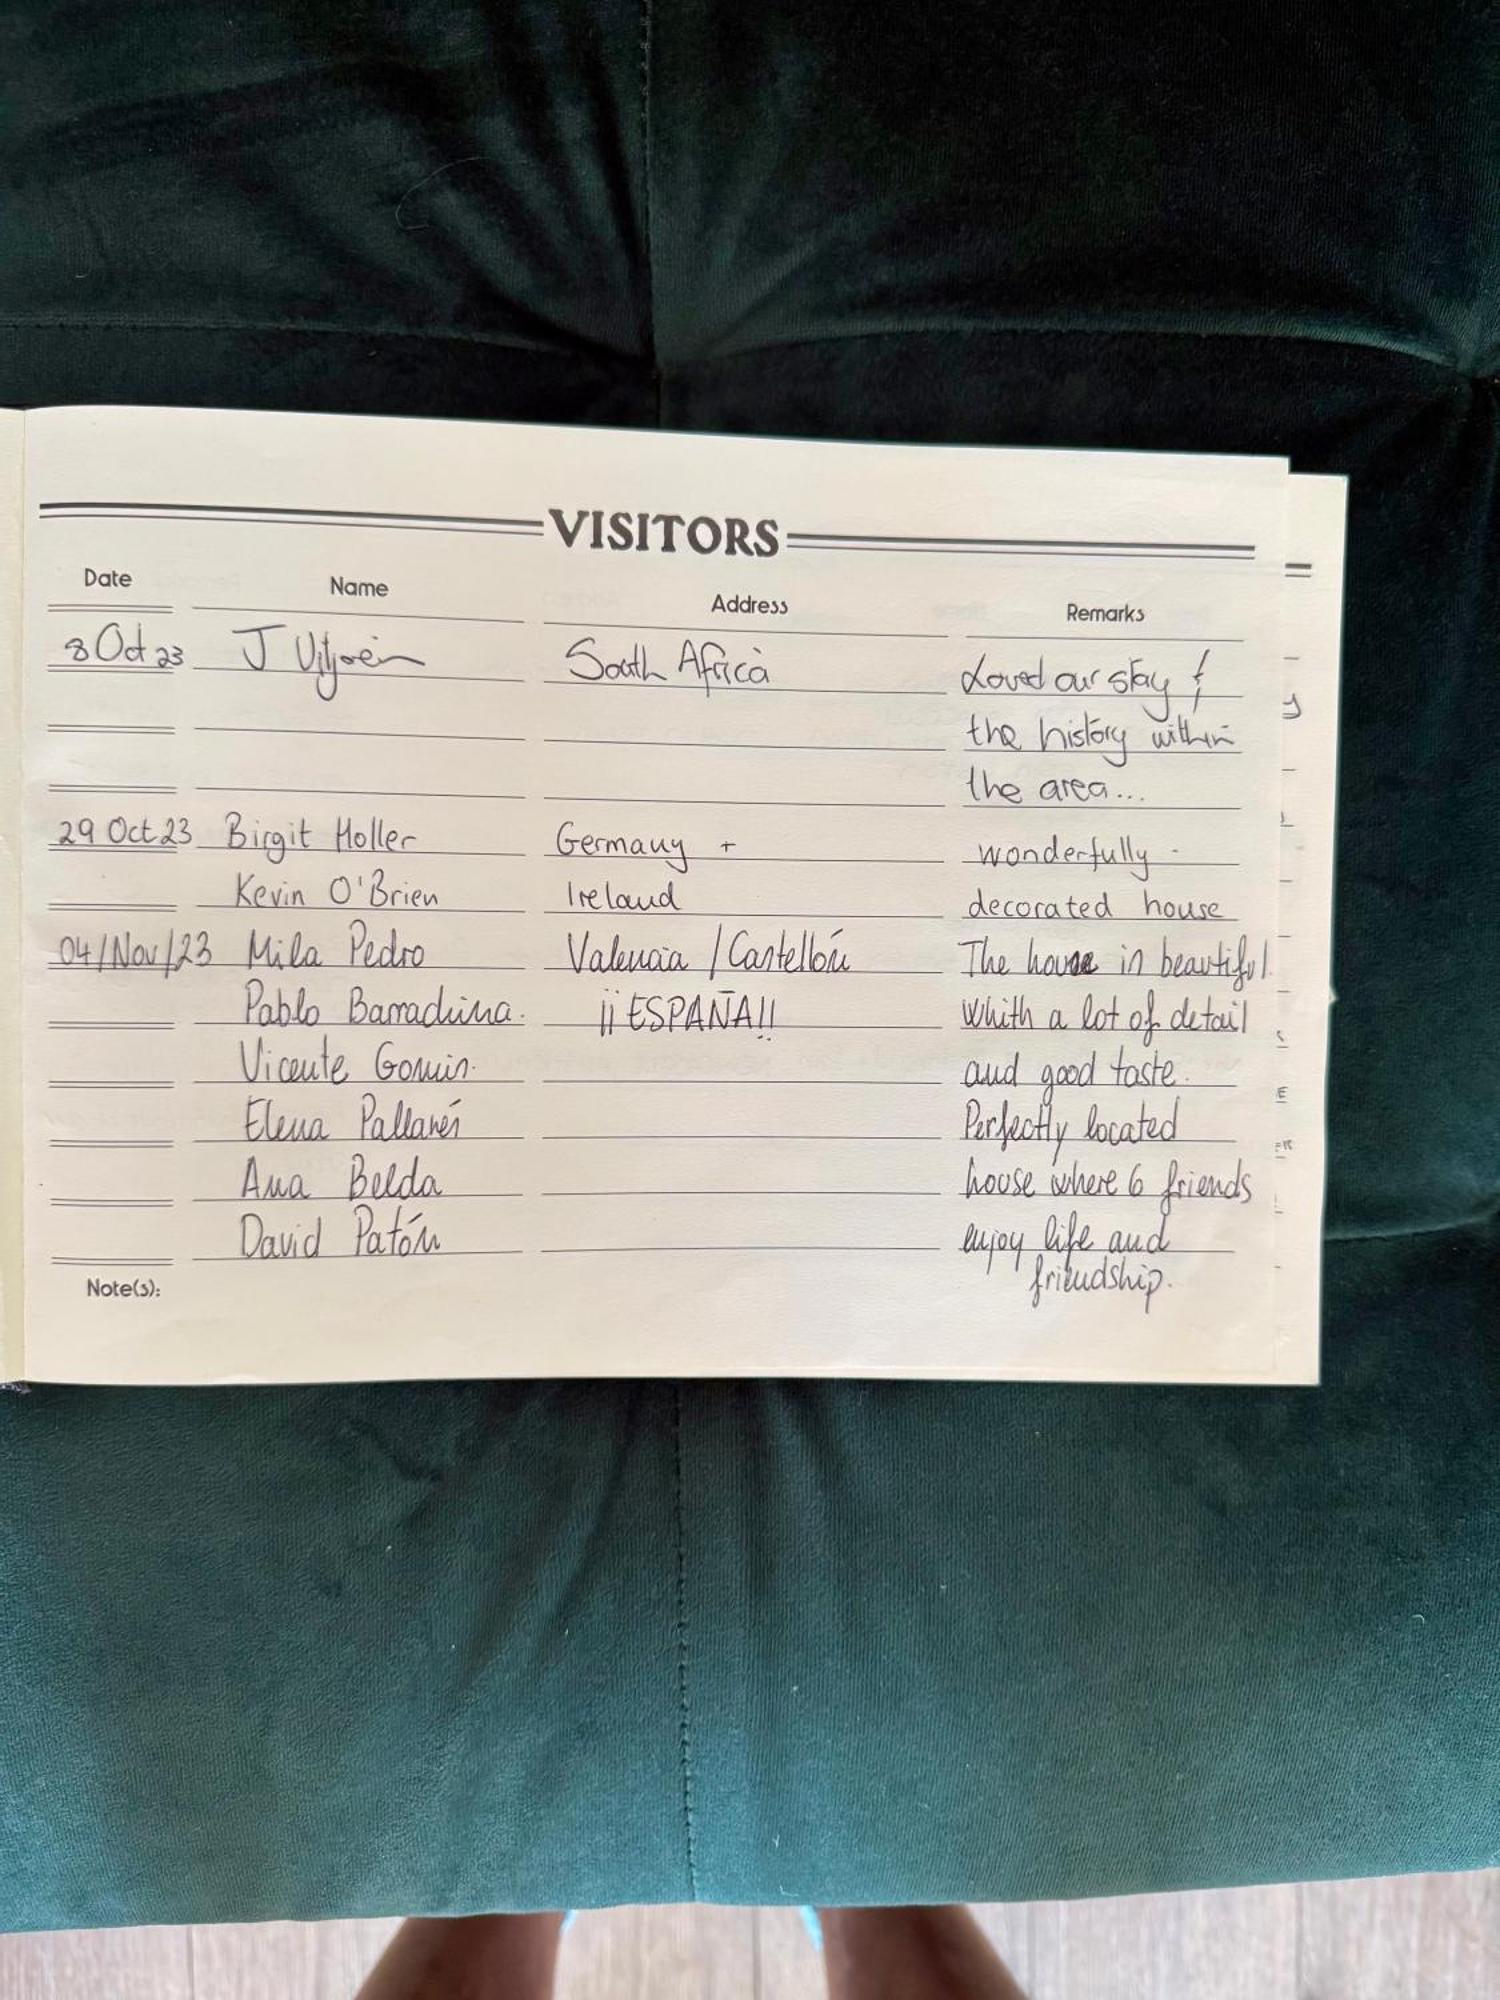 VISITORS
Date Name Address Remarks
8 Oct 23 J Viljoen South Africa Loved our stay &
the history within
the area...
29 Oct 23 Birgit Holler Germany + wonderfully -
Kevin O'Brien Ireland decorated house
04/Nov/23 Mila Pedro Valencia / Castellón The house in beautiful
Pablo Barrachina. ¡¡ESPAÑA!! Whith a lot of detail
Vicente and good taste.
Elena Pallarés Perfectly located
Ana Belda house where 6 friends
David Patón enjoy life and
friendship.
Note(s):